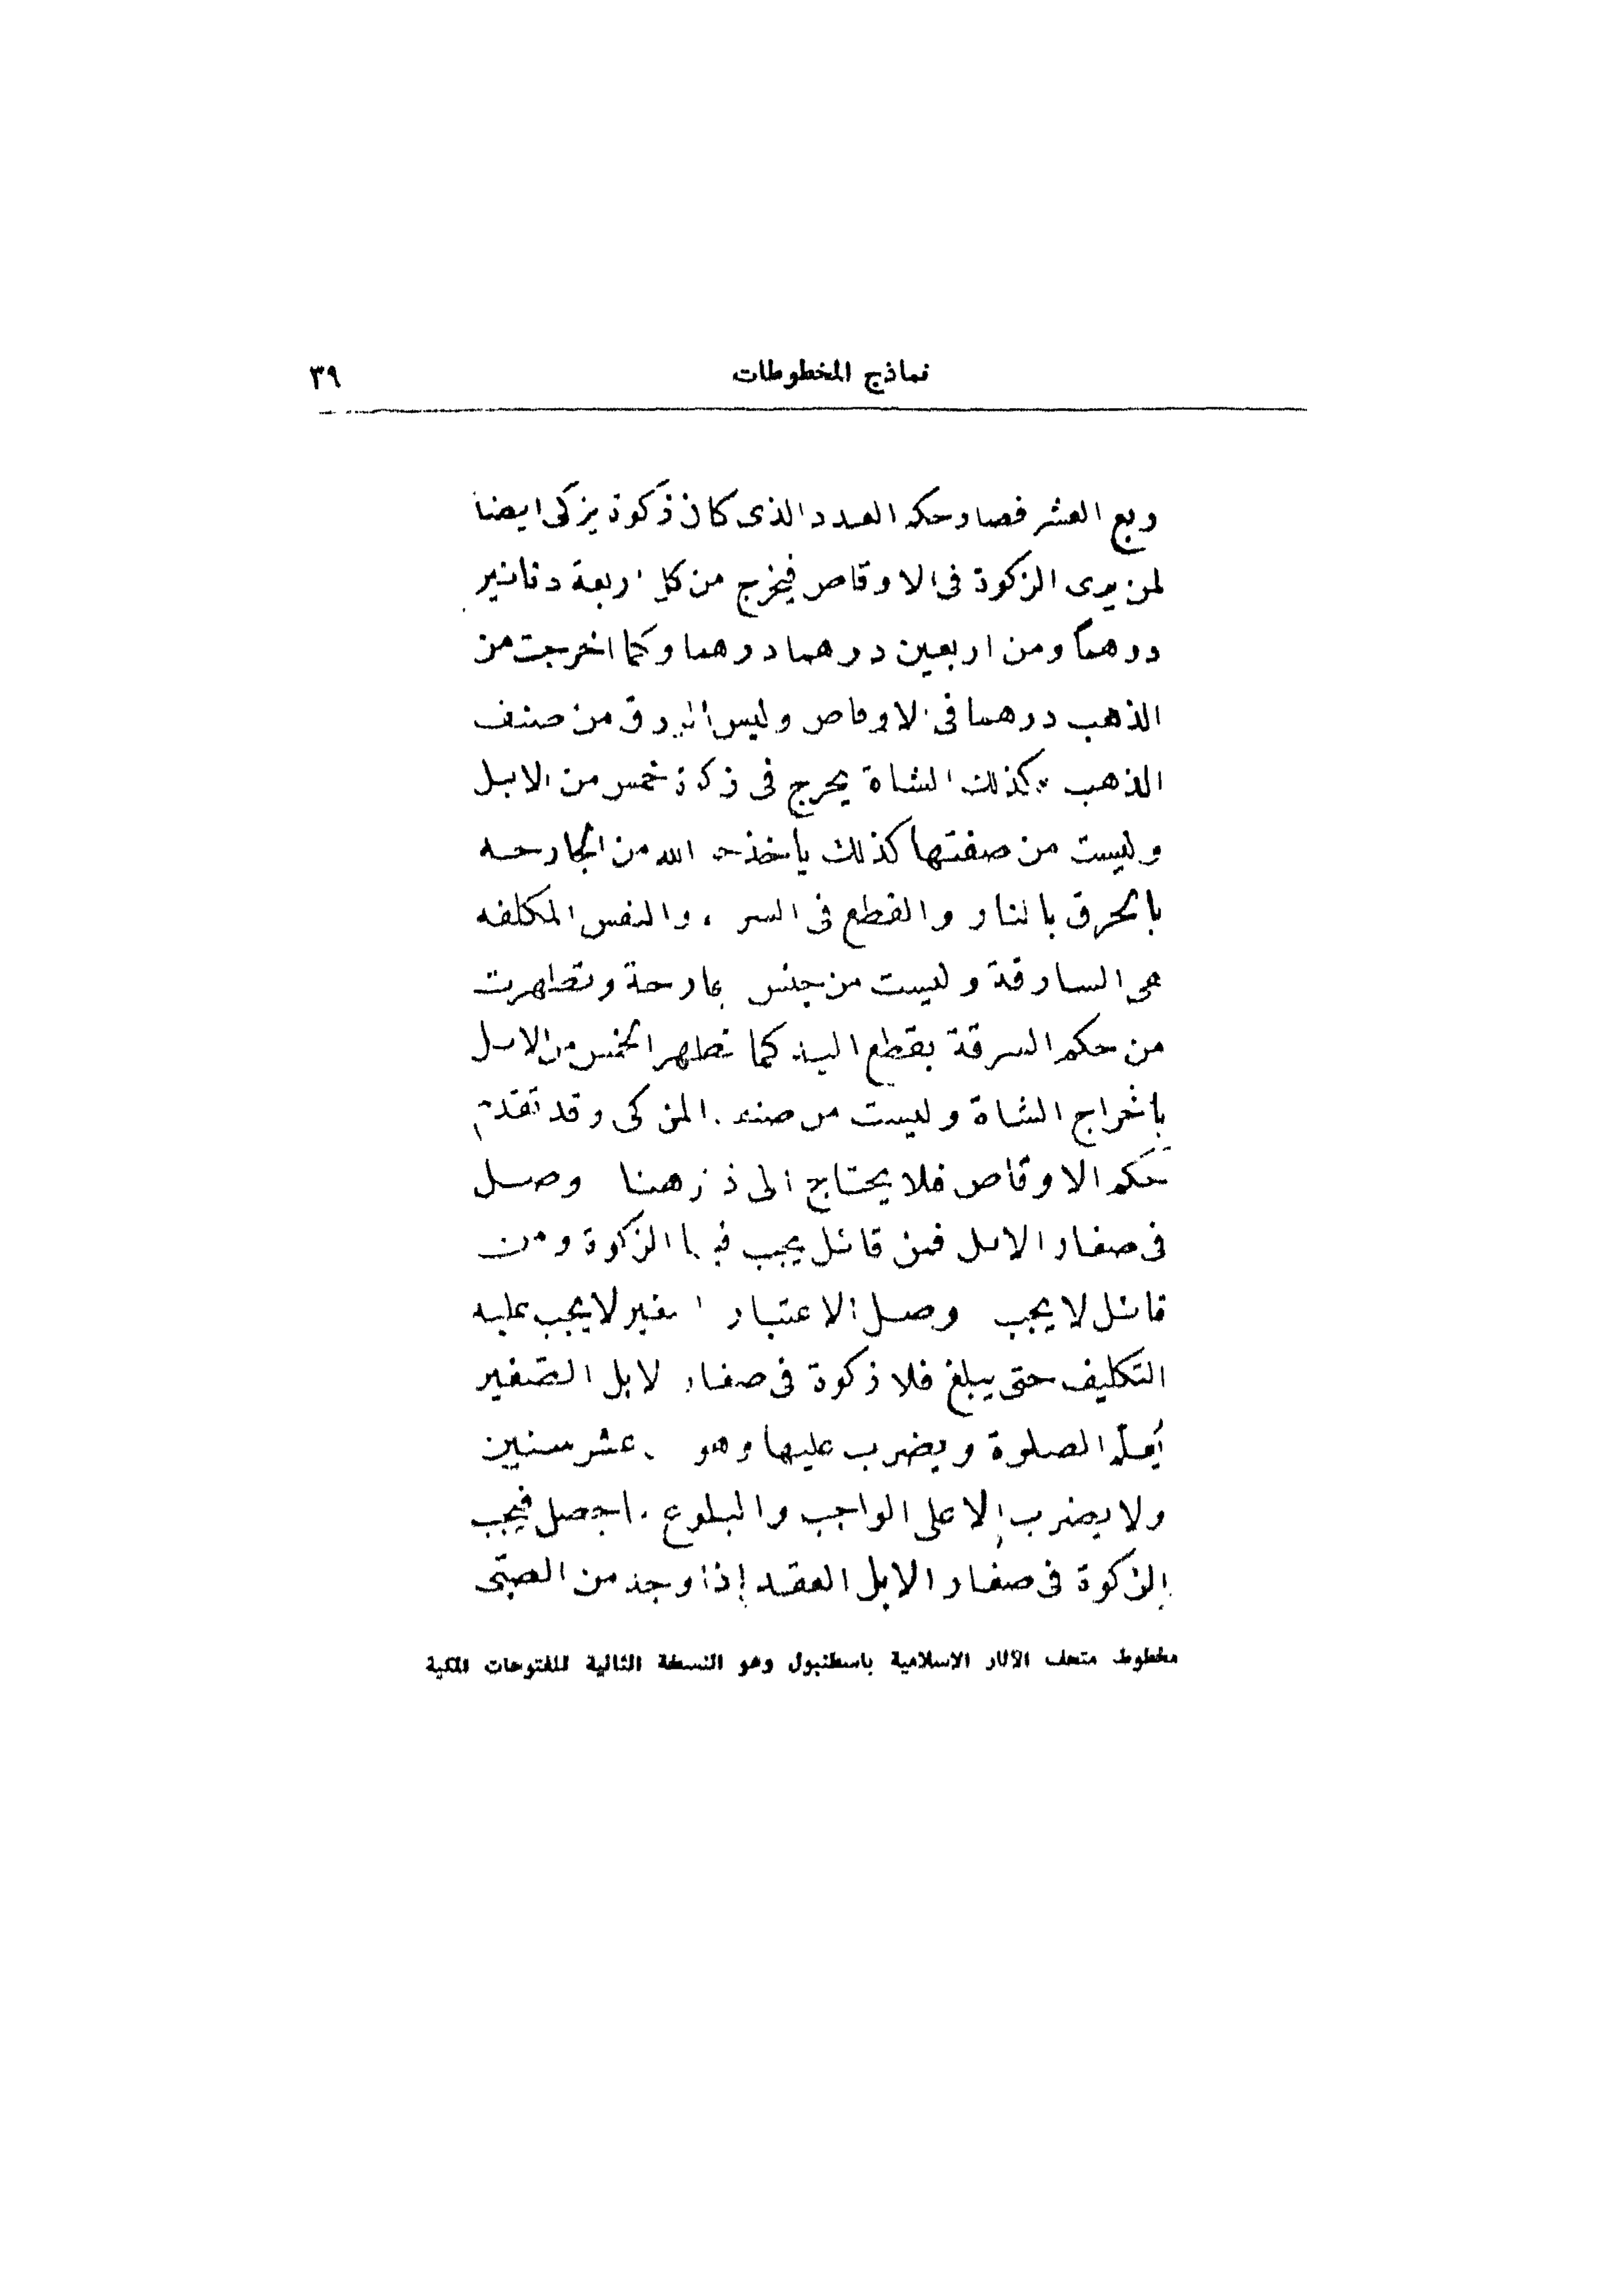 نماذج المخطوطات ٣٩
ربع العشر فصار حكم العدد الذى كان ذكوة يزكى ايضا
لمن يرى الزكوة فى الاوقاص فيخرج من كل اربعة دنانير
درهما ومن اربعين درهما درهما وكما اخرجت من
الذهب درهما فى الاوقاص وليس الورق من صنف
الذهب كذلك الشاة يخرج فى زكاة خمس من الابل
وليست من صفتها كذلك ياخذ الله من الجارحه
بالحرق بالنار والقطع فى السر والنفس المكلفه
هى السارقة وليست من جنس الجارحة وتطهرت
من حكم السرقة بقطع اليد كما تطهر الخمس من الابل
باخراج الشاة وليست من صنف المزكى وقد تقدم
حكم الاوقاص فلا يحتاج الى ذكر هنا وصل
فى صغار الابل فمن قائل يجب فيها الزكوة ومن
قائل لا يجب وصل الاعتبار الصغير لا يجب عليه
التكليف حتى يبلغ فلا زكوة فى صغار الابل الصّغير
يُعلّم الصلوة ويضرب عليها وهو عشر سنين
ولا يضرب إلا على الواجب والبلوغ حصل فيجب
الزكوة فى صغار الابل العقد إذا وجد من الصبّى
مخطوط متحف الآثار الاسلامية باسطنبول وهو النسخة الثانية للفتوحات المكية